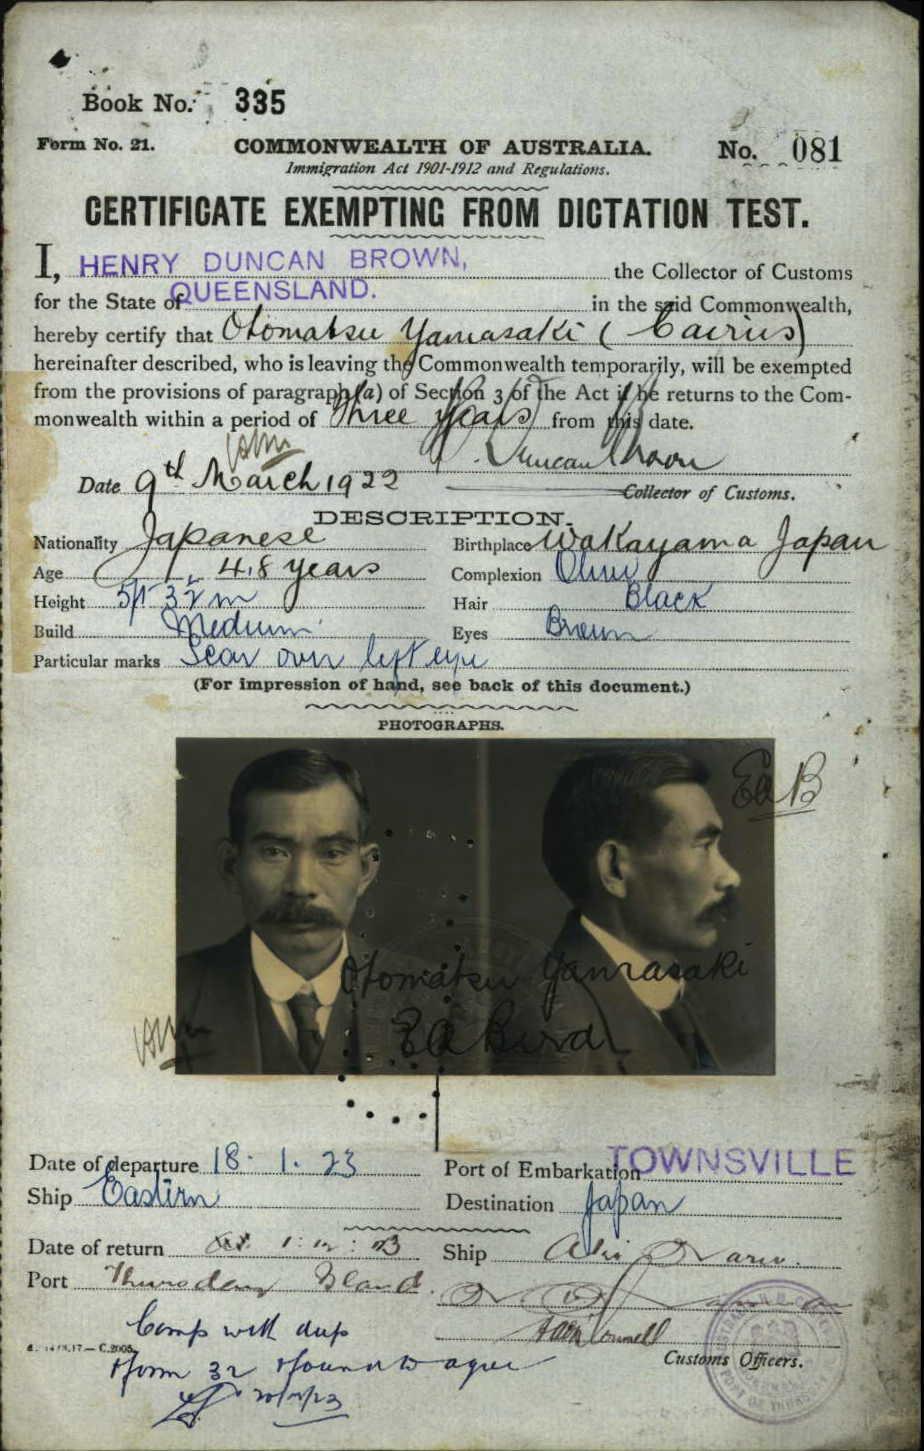 Book No. 335
Form No. 21. COMMONWEALTH OF AUSTRALIA. No. 081
Immigration Act 1901-1912 and Regulations.
CERTIFICATE EXEMPTING FROM DICTATION TEST.
I, HENRY DUNCAN BROWN, the Collector of Customs
for the State of QUEENSLAND. in the said Commonwealth,
hereby certify that Otomatsu Yamasaki (Cairns)
hereinafter described, who is leaving the Commonwealth temporarily, will be exempted
from the provisions of paragraph (a) of Section 3 of the Act if he returns to the Com-
monwealth within a period of Three years from this date.
Date 9th March 1922
Collector of Customs.
DESCRIPTION.
Nationality Japanese Birthplace Wakayama Japan
Age 48 years Complexion Olive
Height Hair Black
Build Medium Eyes Brown
Particular marks Scar over left eye
(For impression of hand, see back of this document.)
PHOTOGRAPHS.
EaB
Otomatsu Yamasaki
Ea Bird
Date of departure 18. 1. 23 Port of Embarkation TOWNSVILLE
Ship Eastern Destination Japan
Date of return Ship Aki Maru.
Port Thursday Island
Comp with dup
form 32 found to agree
Customs Officers.